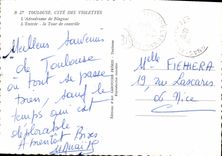 R 27 TOULOUSE, CITÉ DES VIOLETTES
L'Aérodrome de Blagnac
L'Entrée - la Tour de contrôle
Meilleurs Souvenirs
de Toulouse
où tout se passe
bien, sauf le
temps qui est
déplorable
A bientôt Bises
Melle FIGHIERA
19, rue Lascaris
Nice